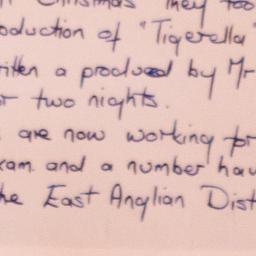 Christmas they too
oduction of "Tigerella
itten a produced by Mr
r two nights.
are now working for
xam. and a number hav
he East Anglian Dist